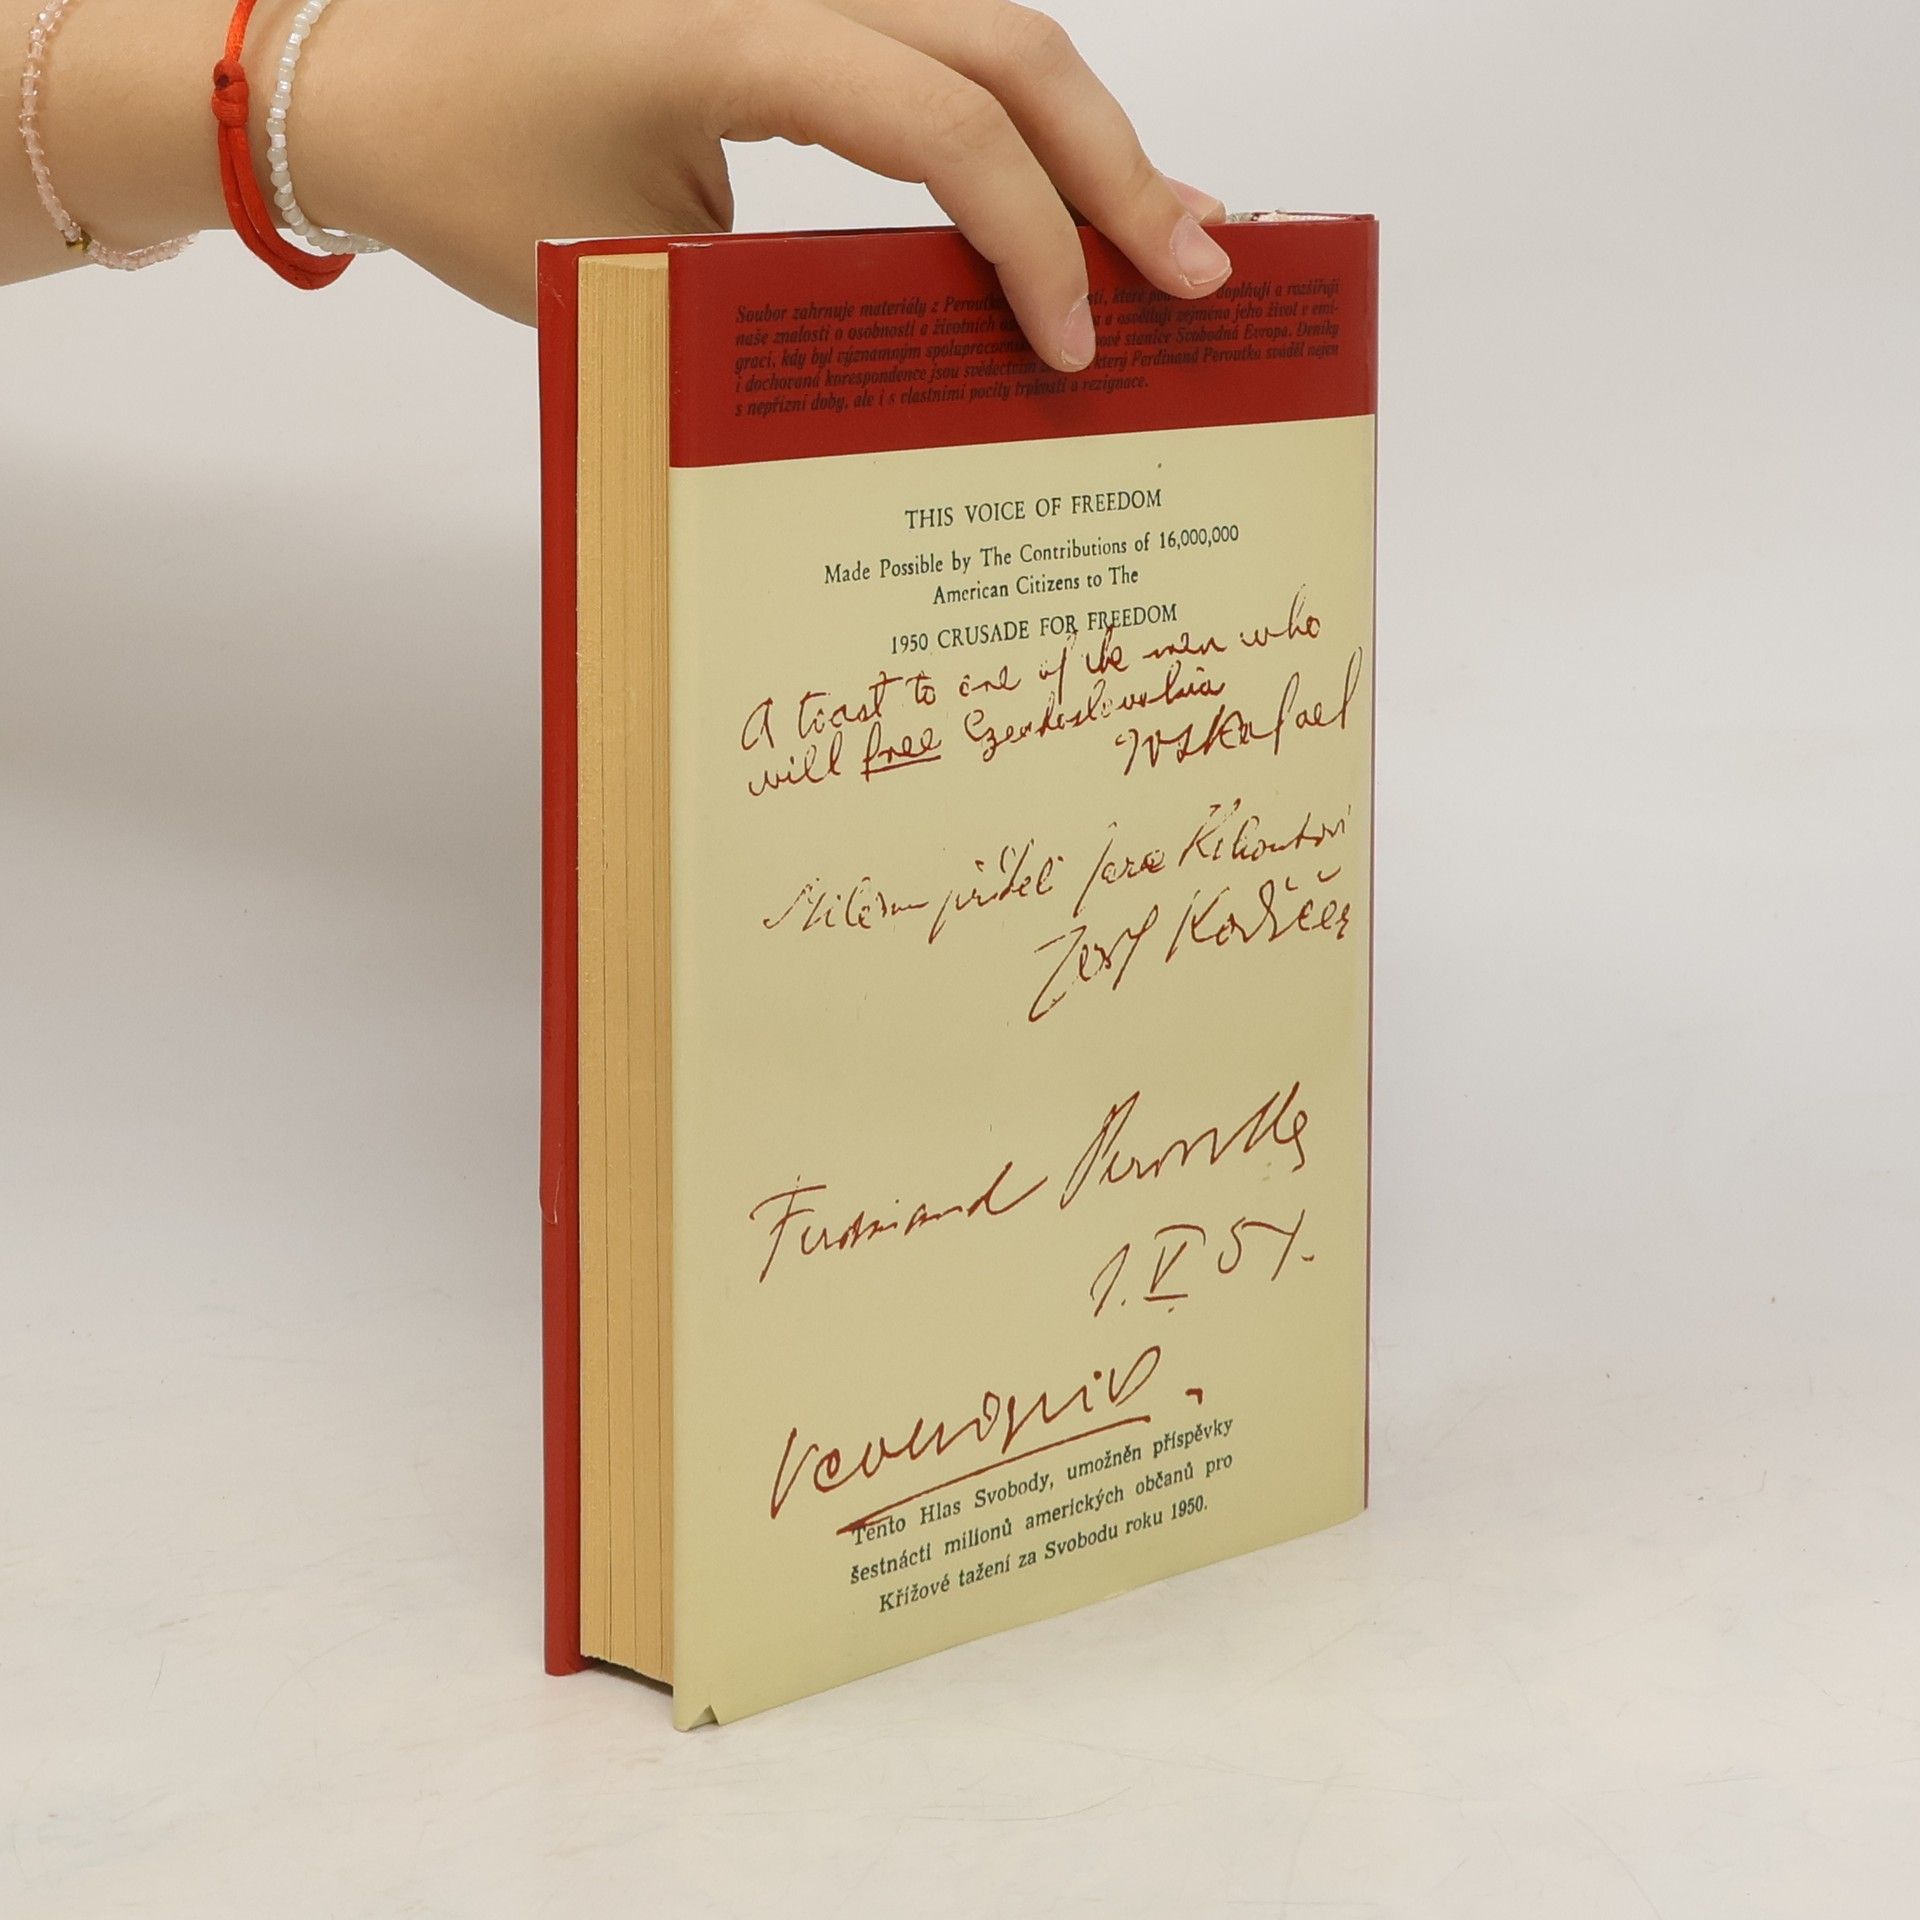 Soubor zahrnuje materiály z , které doplňují a rozšiřují
naše znalosti o osobnosti a životních a osvětlují zejména jeho život v emi-
graci, kdy byl významným stanice Svobodná Evropa. Deníky
i dochovaná korespondence jsou svědectvím který Ferdinand Peroutka sváděl nejen
s nepřízní doby, ale i s vlastními pocity trpkosti a rezignace.
THIS VOICE OF FREEDOM
Made Possible by The Contributions of 16,000,000
American Citizens to The
1950 CRUSADE FOR FREEDOM
A toast to one of the men who
will free Czechoslovakia
Milému příteli
Ferdinand Peroutka
1. V 51.
Tento Hlas Svobody, umožněn příspěvky
šestnácti milionů amerických občanů pro
Křížové tažení za Svobodu roku 1950.